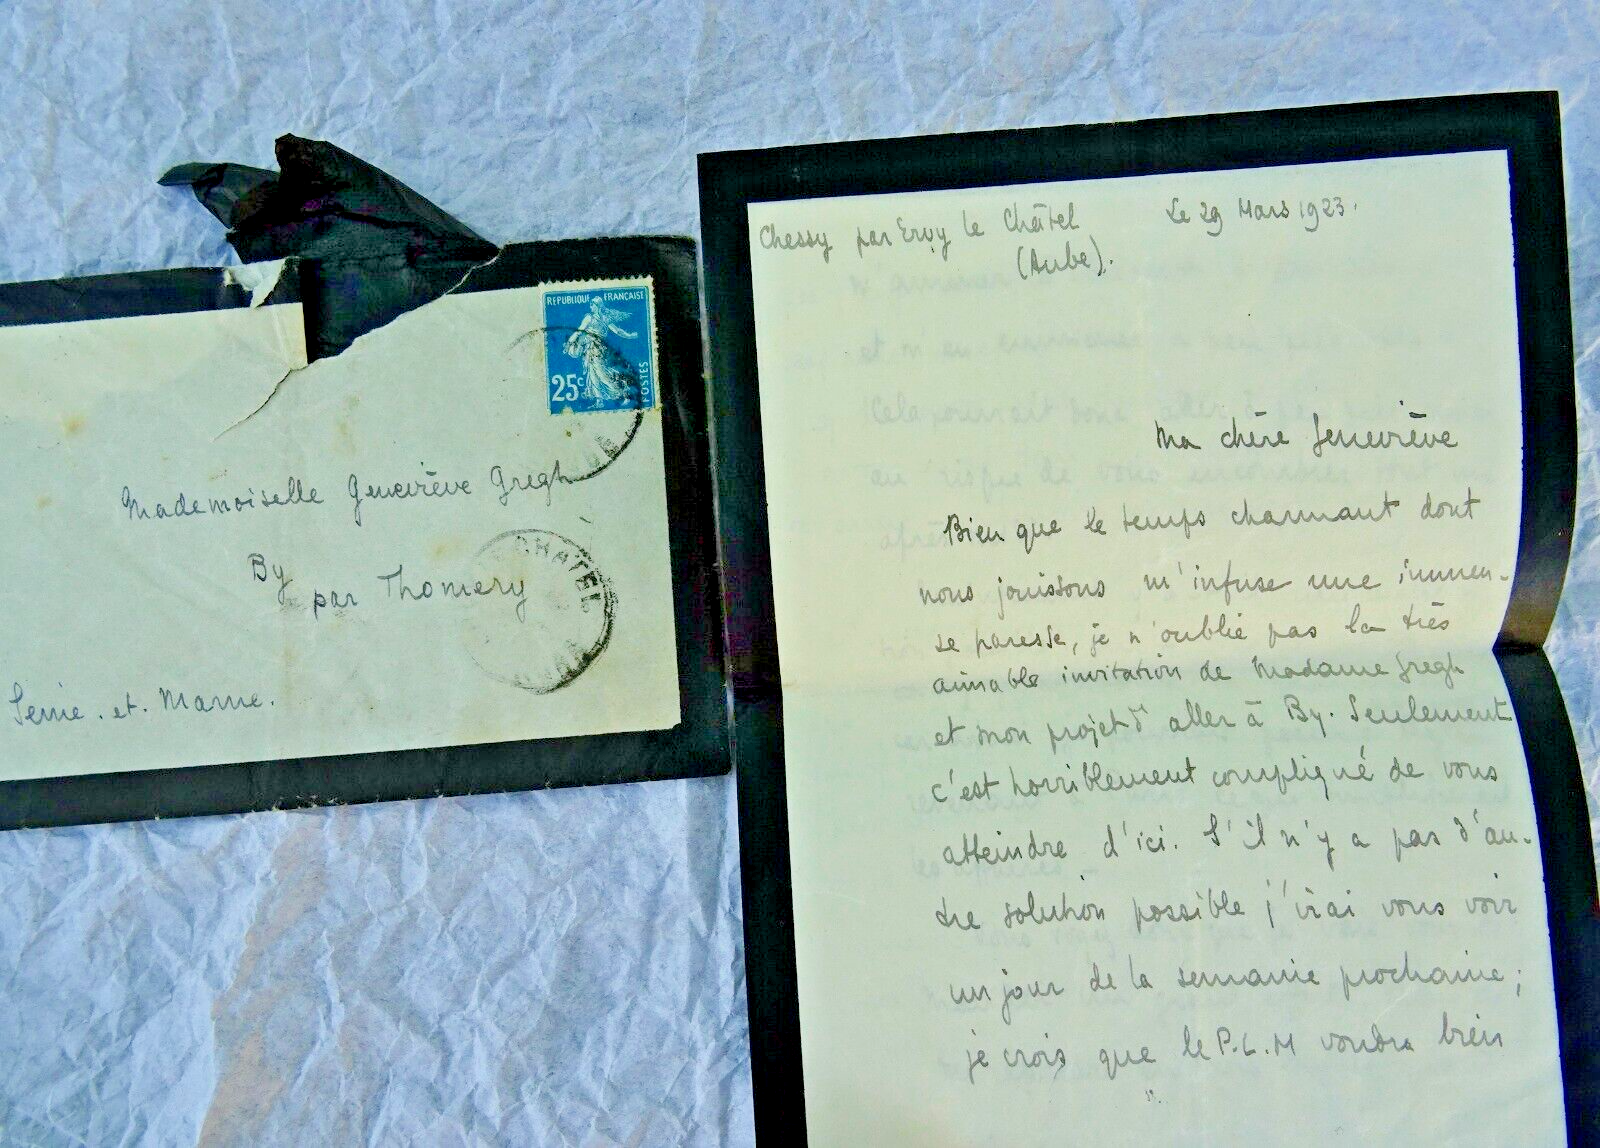 REPUBLIQUE FRANÇAISE
25c
POSTES
Mademoiselle Geneviève Gregh
By
par Thomery
Seine. et. Marne.
CHATEL
Chessy par Ervy le Châtel
(Aube).
Le 29 Mars 1923.
Ma chère Geneviève
Bien que le temps charmant dont
nous jouissons m'infuse une immen-
se paresse, je n'oublie pas la très
aimable invitation de Madame Gregh
et mon projet d'aller à By. Seulement
c'est horriblement compliqué de vous
atteindre d'ici. S'il n'y a pas d'au-
tre solution possible j'irai vous voir
un jour de la semaine prochaine;
je crois que le P.L.M voudra bien